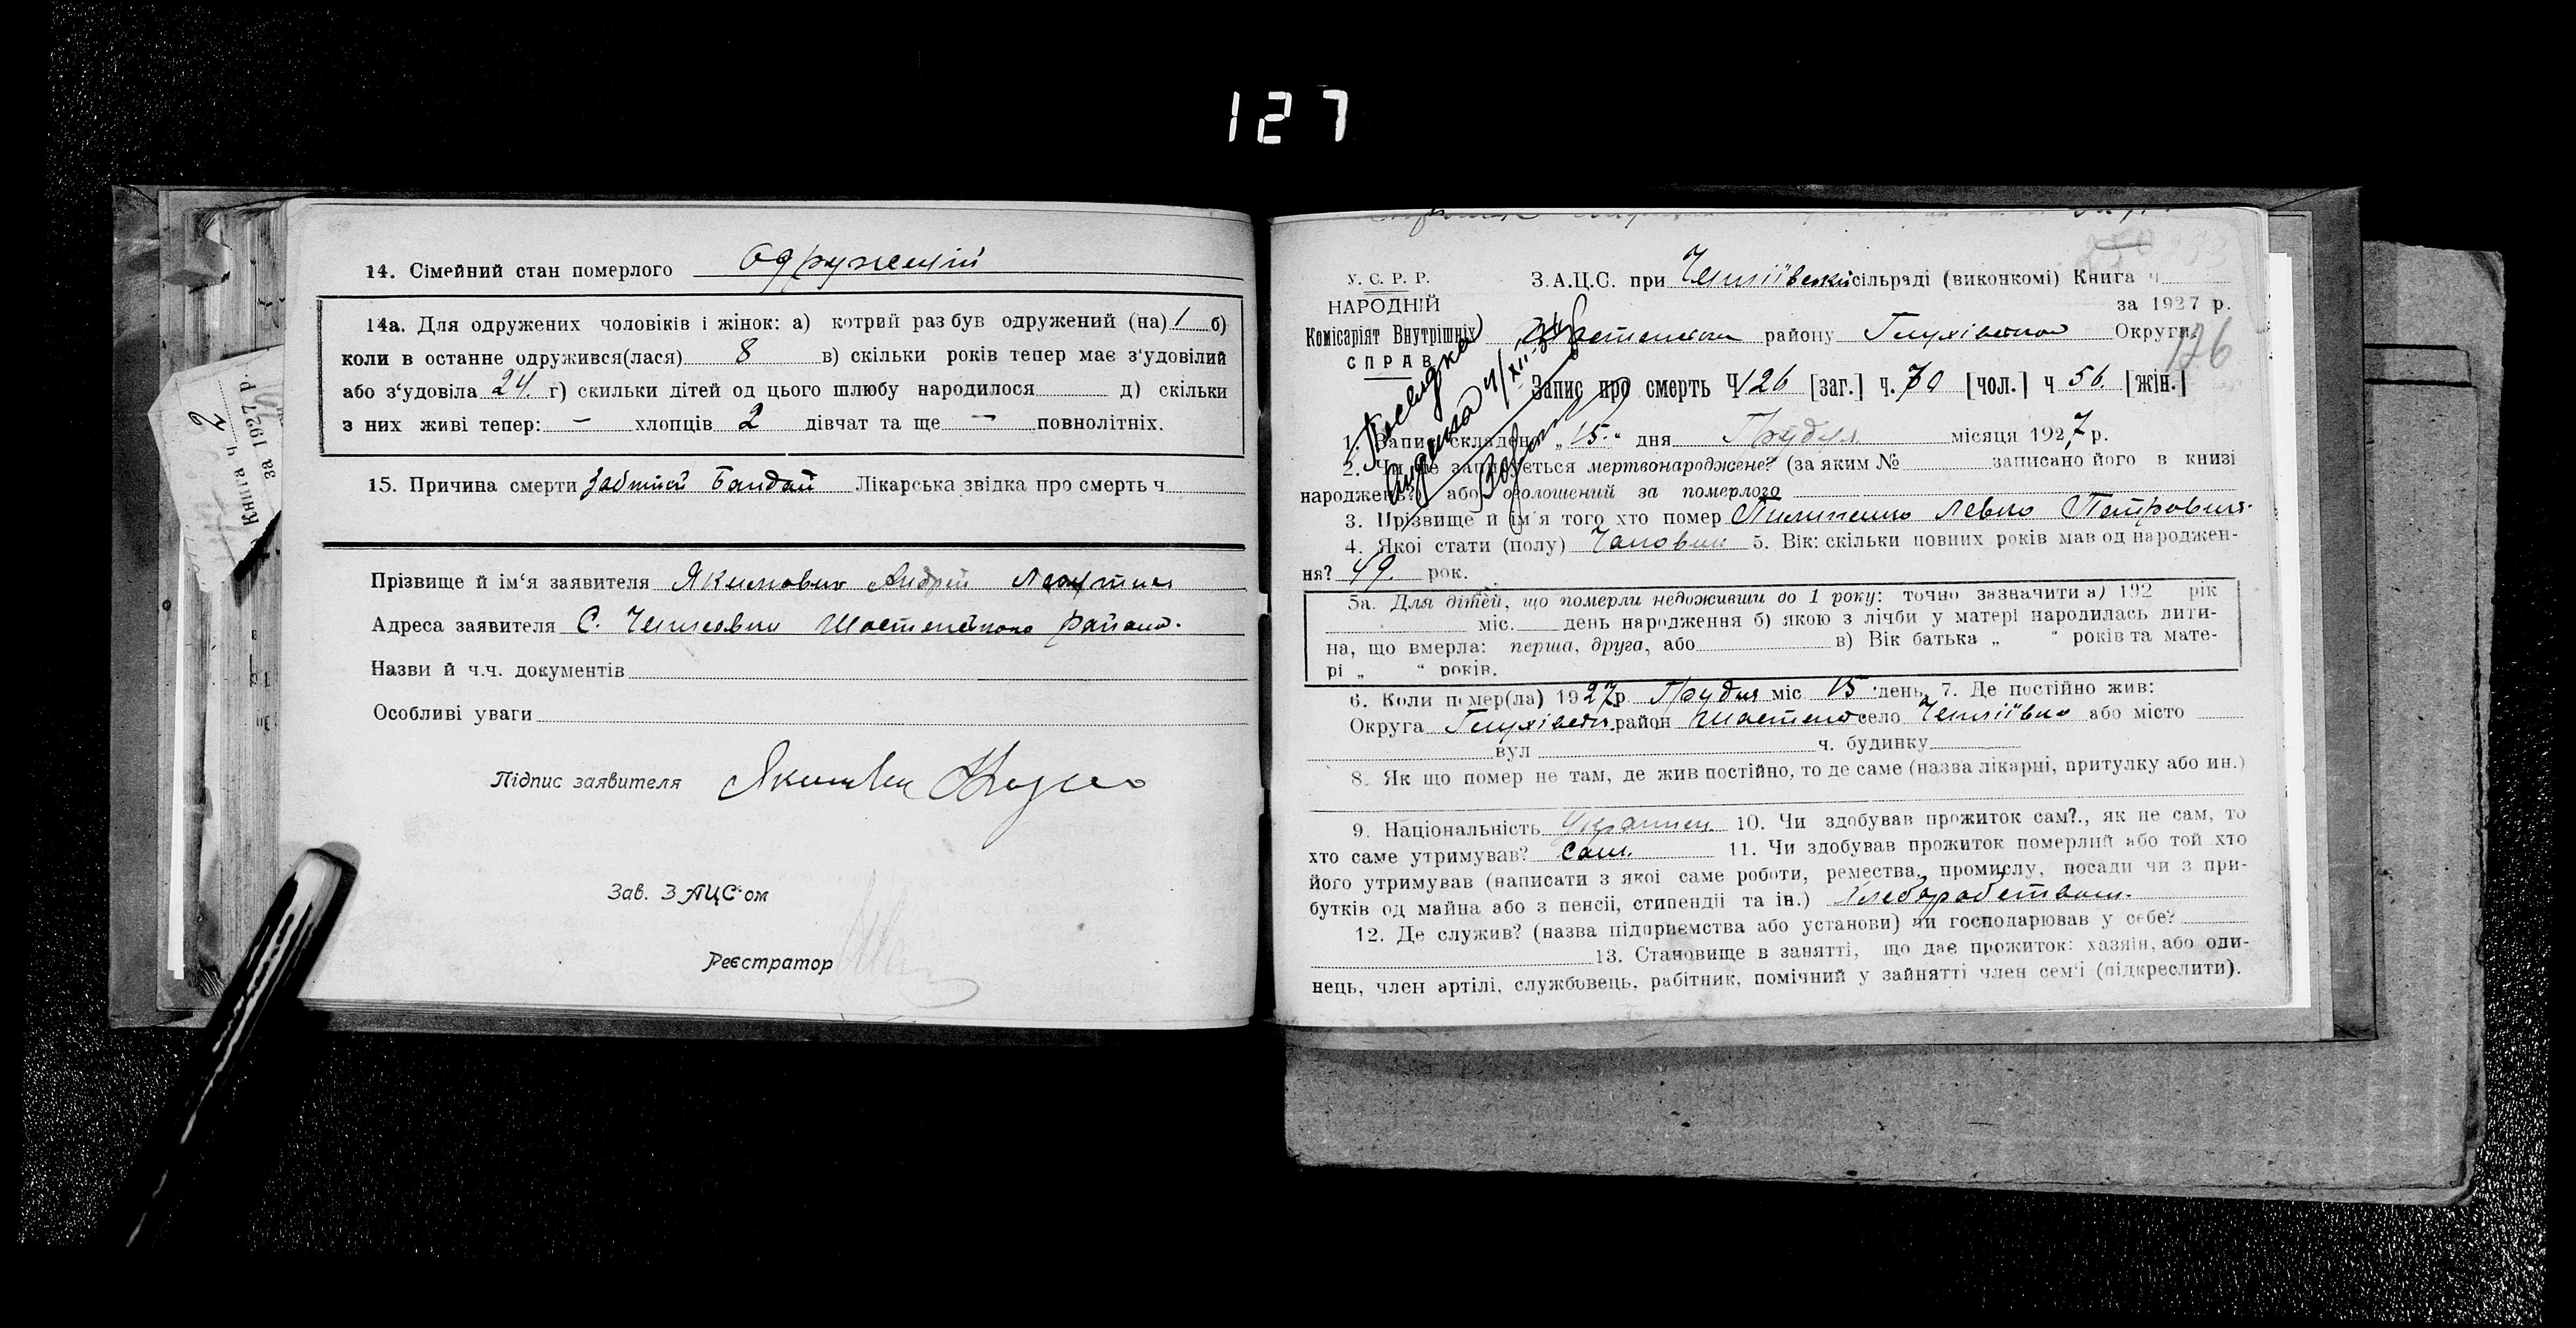 127
Книга ч. 2
за 1927 р.
14. Сімейний стан померлого Одружений
14а. Для одружених чоловіків і жінок: а) котрий раз був одружений (на) 1 б)
коли в останне одружився(лася) 8 в) скільки років тепер має з'удовілий
або з'удовіла 24. г) скильки дітей од цього шлюбу народилося д) скільки
з них живі тепер: – хлопців 2 дівчат та ще – повнолітніх.
15. Причина смерти Забитий Бандой Лікарська звідка про смерть ч
Прізвище й ім'я заявителя Якимович Андрій
Адреса заявителя С. Шостенського Району.
Назви й ч.ч. документів
Особливі уваги
Підпис заявителя
Зав. ЗАЦС'ом
Реєстратор
У. С. Р. Р.
З.А.Ц.С. при сільраді (виконкомі) Книга ч
НАРОДНІЙ
за 1927 р.
Комісаріят Внутрішніх району Глухівської Округи.
СПРАВ
126
Запис про смерть Ч 126 [заг.] ч. 70 [чол.] ч 56. [жін.]
1. Запис складено „15" дня Грудня місяця 1927 р.
2. Чи не записується мертвонароджене? (за яким № записано його в книзі
народжень? або оголошений за померлого
3. Прізвище й ім'я того хто помер Пилипенко Левко Петрович.
4. Якоі стати (полу) Чоловик 5. Вік: скільки повних років мав од народжен-
ня? 49. рок.
5а. Для дітей, що померли недоживши до 1 року: точно зазначити а) 192 рік
міс. день народження б) якою з лічби у матері народилась дити-
на, що вмерла: перша, друга, або в) Вік батька „ " років та мате-
рі „ " років.
6. Коли помер(ла) 1927 р. Грудня міс 15 день, 7. Де постійно жив:
Округа Глухівськ. район Шостенс село або місто
вул ч. будинку
8. Як що помер не там, де жив постійно, то де саме (назва лікарні, притулку або ин.)
9. Національність Украинец 10. Чи здобував прожиток сам?., як не сам, то
хто саме утримував? Сам. 11. Чи здобував прожиток померлий або той хто
його утримував (написати з якоі саме роботи, ремества, промислу, посади чи з при-
бутків од майна або з пенсіі, стипендіі та ін.) Хлеборобством.
12. Де служив? (назва підприємства або установи) чи господарював у себе?
13. Становище в занятті, що дає прожиток: хазяін, або оди-
нець, член артілі, службовець, рабітник, помічний у зайнятті член сем'і (підкреслити).